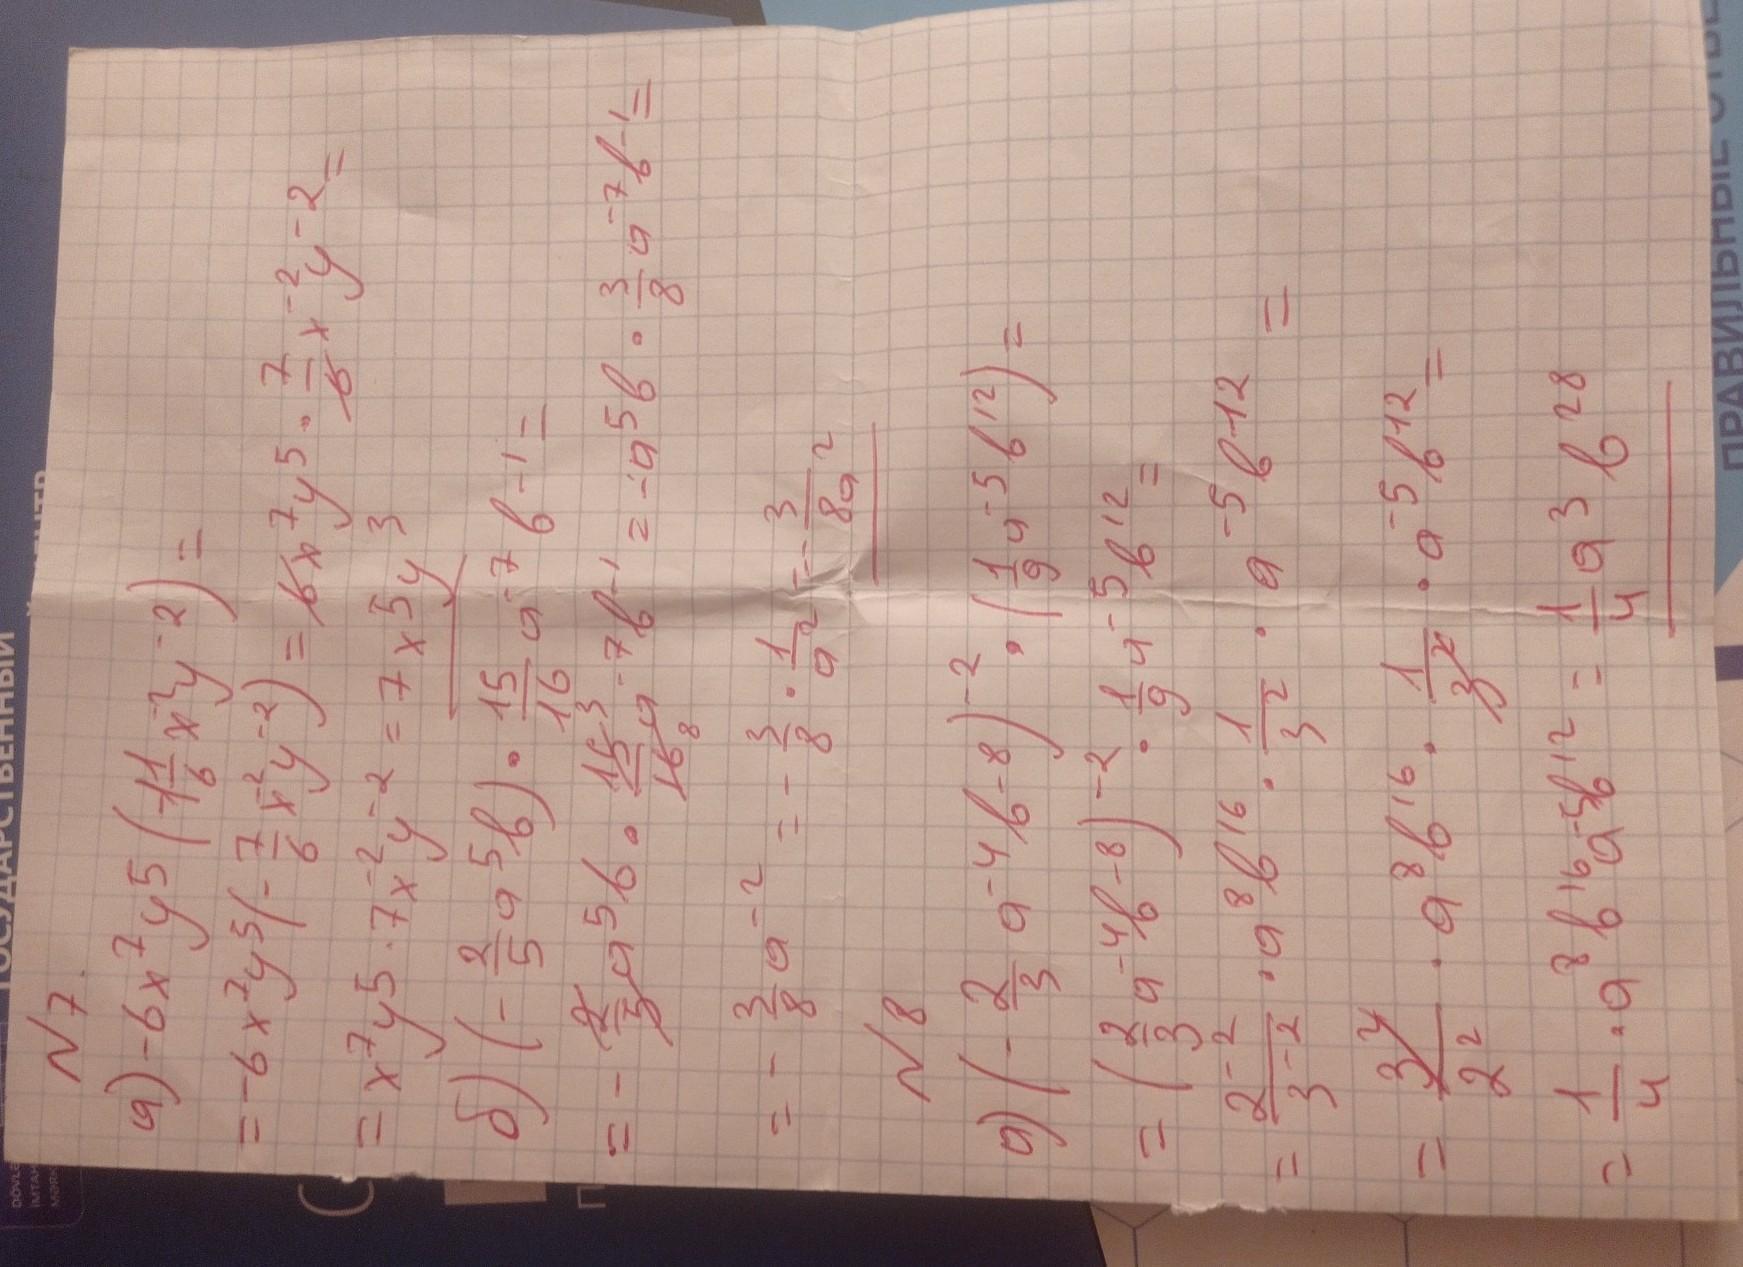 N7.
а) -6x⁷y⁵(-1 1/6 x⁻²y⁻²) =
= -6x⁷y⁵(-7/6 x⁻²y⁻²) = 6x⁷y⁵ · 7/6 x⁻²y⁻² =
= x⁷y⁵ · 7x⁻²y⁻² = 7x⁵y³
б) (-2/5 a⁵b) · 15/16 a⁻⁷b⁻¹ =
= -2/5 a⁵b · 15³/16₈ a⁻⁷b⁻¹ = -a⁵b · 3/8 a⁻⁷b⁻¹ =
= -3/8 a⁻² = -3/8 · 1/a² = -3/8a²
N8
а) (-2/3 a⁻⁴b⁻⁸)⁻² · (1/9 a⁻⁵b¹²) =
= (2/3 a⁻⁴b⁻⁸)⁻² · 1/9 a⁻⁵b¹² =
= 2⁻²/3⁻² · a⁸b¹⁶ · 1/3² · a⁻⁵b¹² =
= 3²/2² · a⁸b¹⁶ · 1/3² · a⁻⁵b¹² =
= 1/4 · a⁸b¹⁶a⁻⁵b¹² = 1/4 a³b²⁸
ПРАВИЛЬНЫЕ